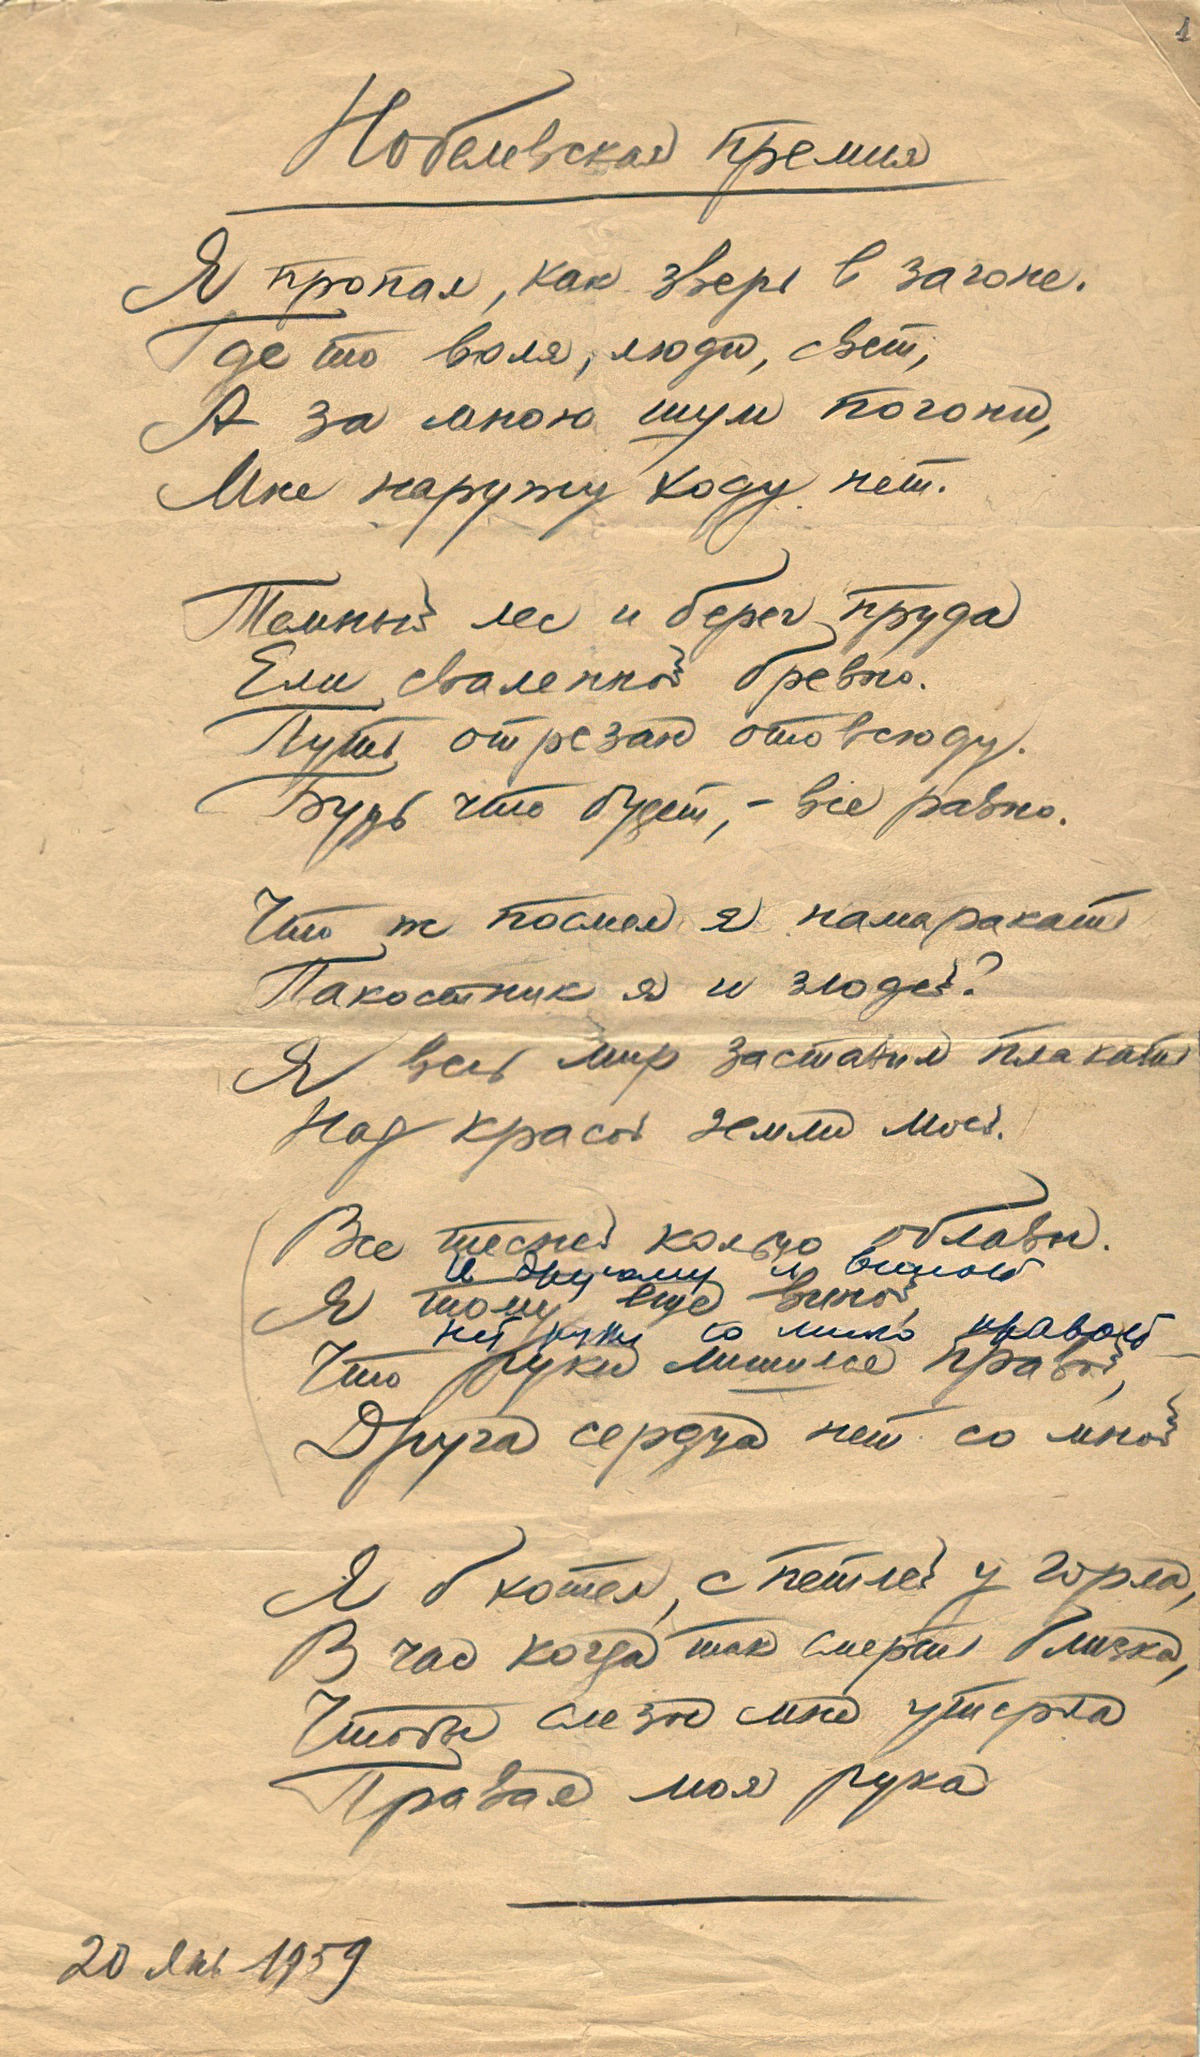 1
Нобелевская премия
Я пропал, как зверь в загоне.
Где то воля, люди, свет,
А за мною шум погони,
Мне наружу ходу нет.
Темный лес и берег пруда
Ели сваленной бревно.
Путь отрезан отовсюду.
Будь что будет, – все равно.
Что ж посмел я намаракать
Пакостник я и злодей?
Я весь мир заставил плакать
Над красой земли моей.
Все тесней кольцо облавы.
И другому я виной
Я тому еще виной,
нет руки со мною правой
Что руки лишился правой,
Друга сердца нет со мной
Я б хотел, с петлей у горла,
В час когда так смерть близка,
Чтобы слезы мне утерла
Правая моя рука
20 янв 1959